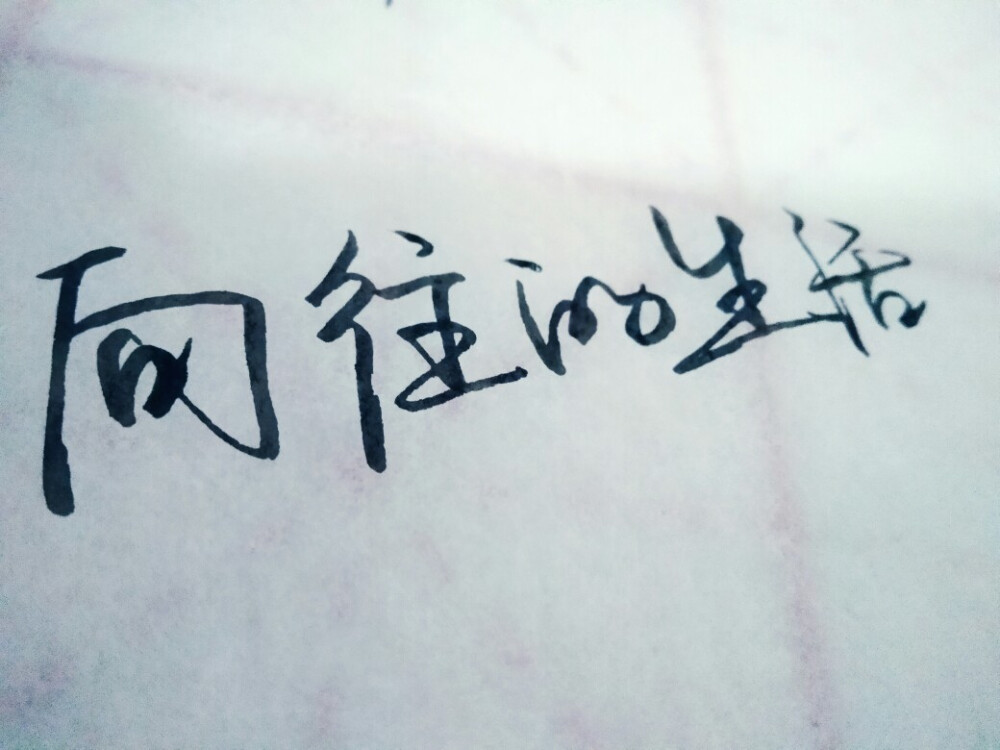 向往的生活